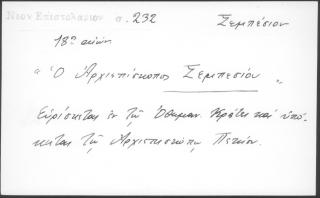 Νεον Επιστολαριον σ. 232 Σεμπέσιον
18ος αιών
"Ὁ Ἀρχιεπίσκοπος Σεμπεσίου "
Εὑρίσκεται ἐν τῷ Ὀθωμαν. Κράτει καὶ ὑπό-
κειται τῷ Ἀρχιεπισκόπῳ Πεκίου.